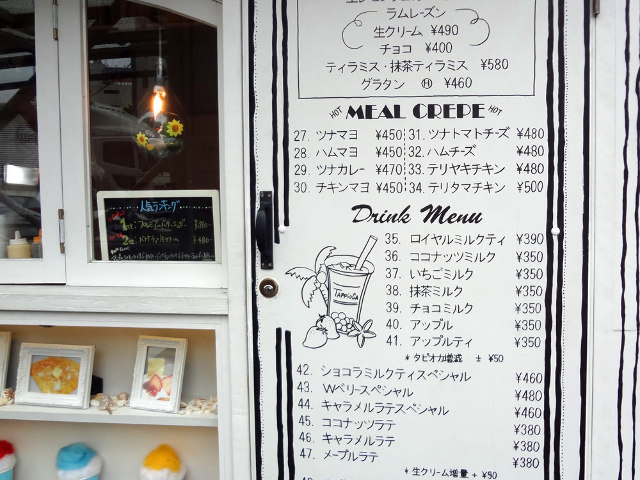 ラムレーズン
生クリーム ¥490
チョコ ¥400
ティラミス・抹茶ティラミス ¥580
グラタン Ⓗ ¥460
HOT MEAL CREPE HOT
27. ツナマヨ ¥450 31. ツナトマトチーズ ¥480
28. ハムマヨ ¥450 32. ハムチーズ ¥480
29. ツナカレー ¥470 33. テリヤキチキン ¥480
30. チキンマヨ ¥450 34. テリタマチキン ¥500
Drink Menu
35. ロイヤルミルクティ ¥390
36. ココナッツミルク ¥350
37. いちごミルク ¥350
38. 抹茶ミルク ¥350
39. チョコミルク ¥350
40. アップル ¥350
41. アップルティ ¥350
TAPIOCA
*タピオカ増減 ± ¥50
42. ショコラミルクティスペシャル ¥460
43. Wベリースペシャル ¥480
44. キャラメルラテスペシャル ¥460
45. ココナッツラテ ¥380
46. キャラメルラテ ¥380
47. メープルラテ ¥380
*生クリーム増量 + ¥50
人気ランキング